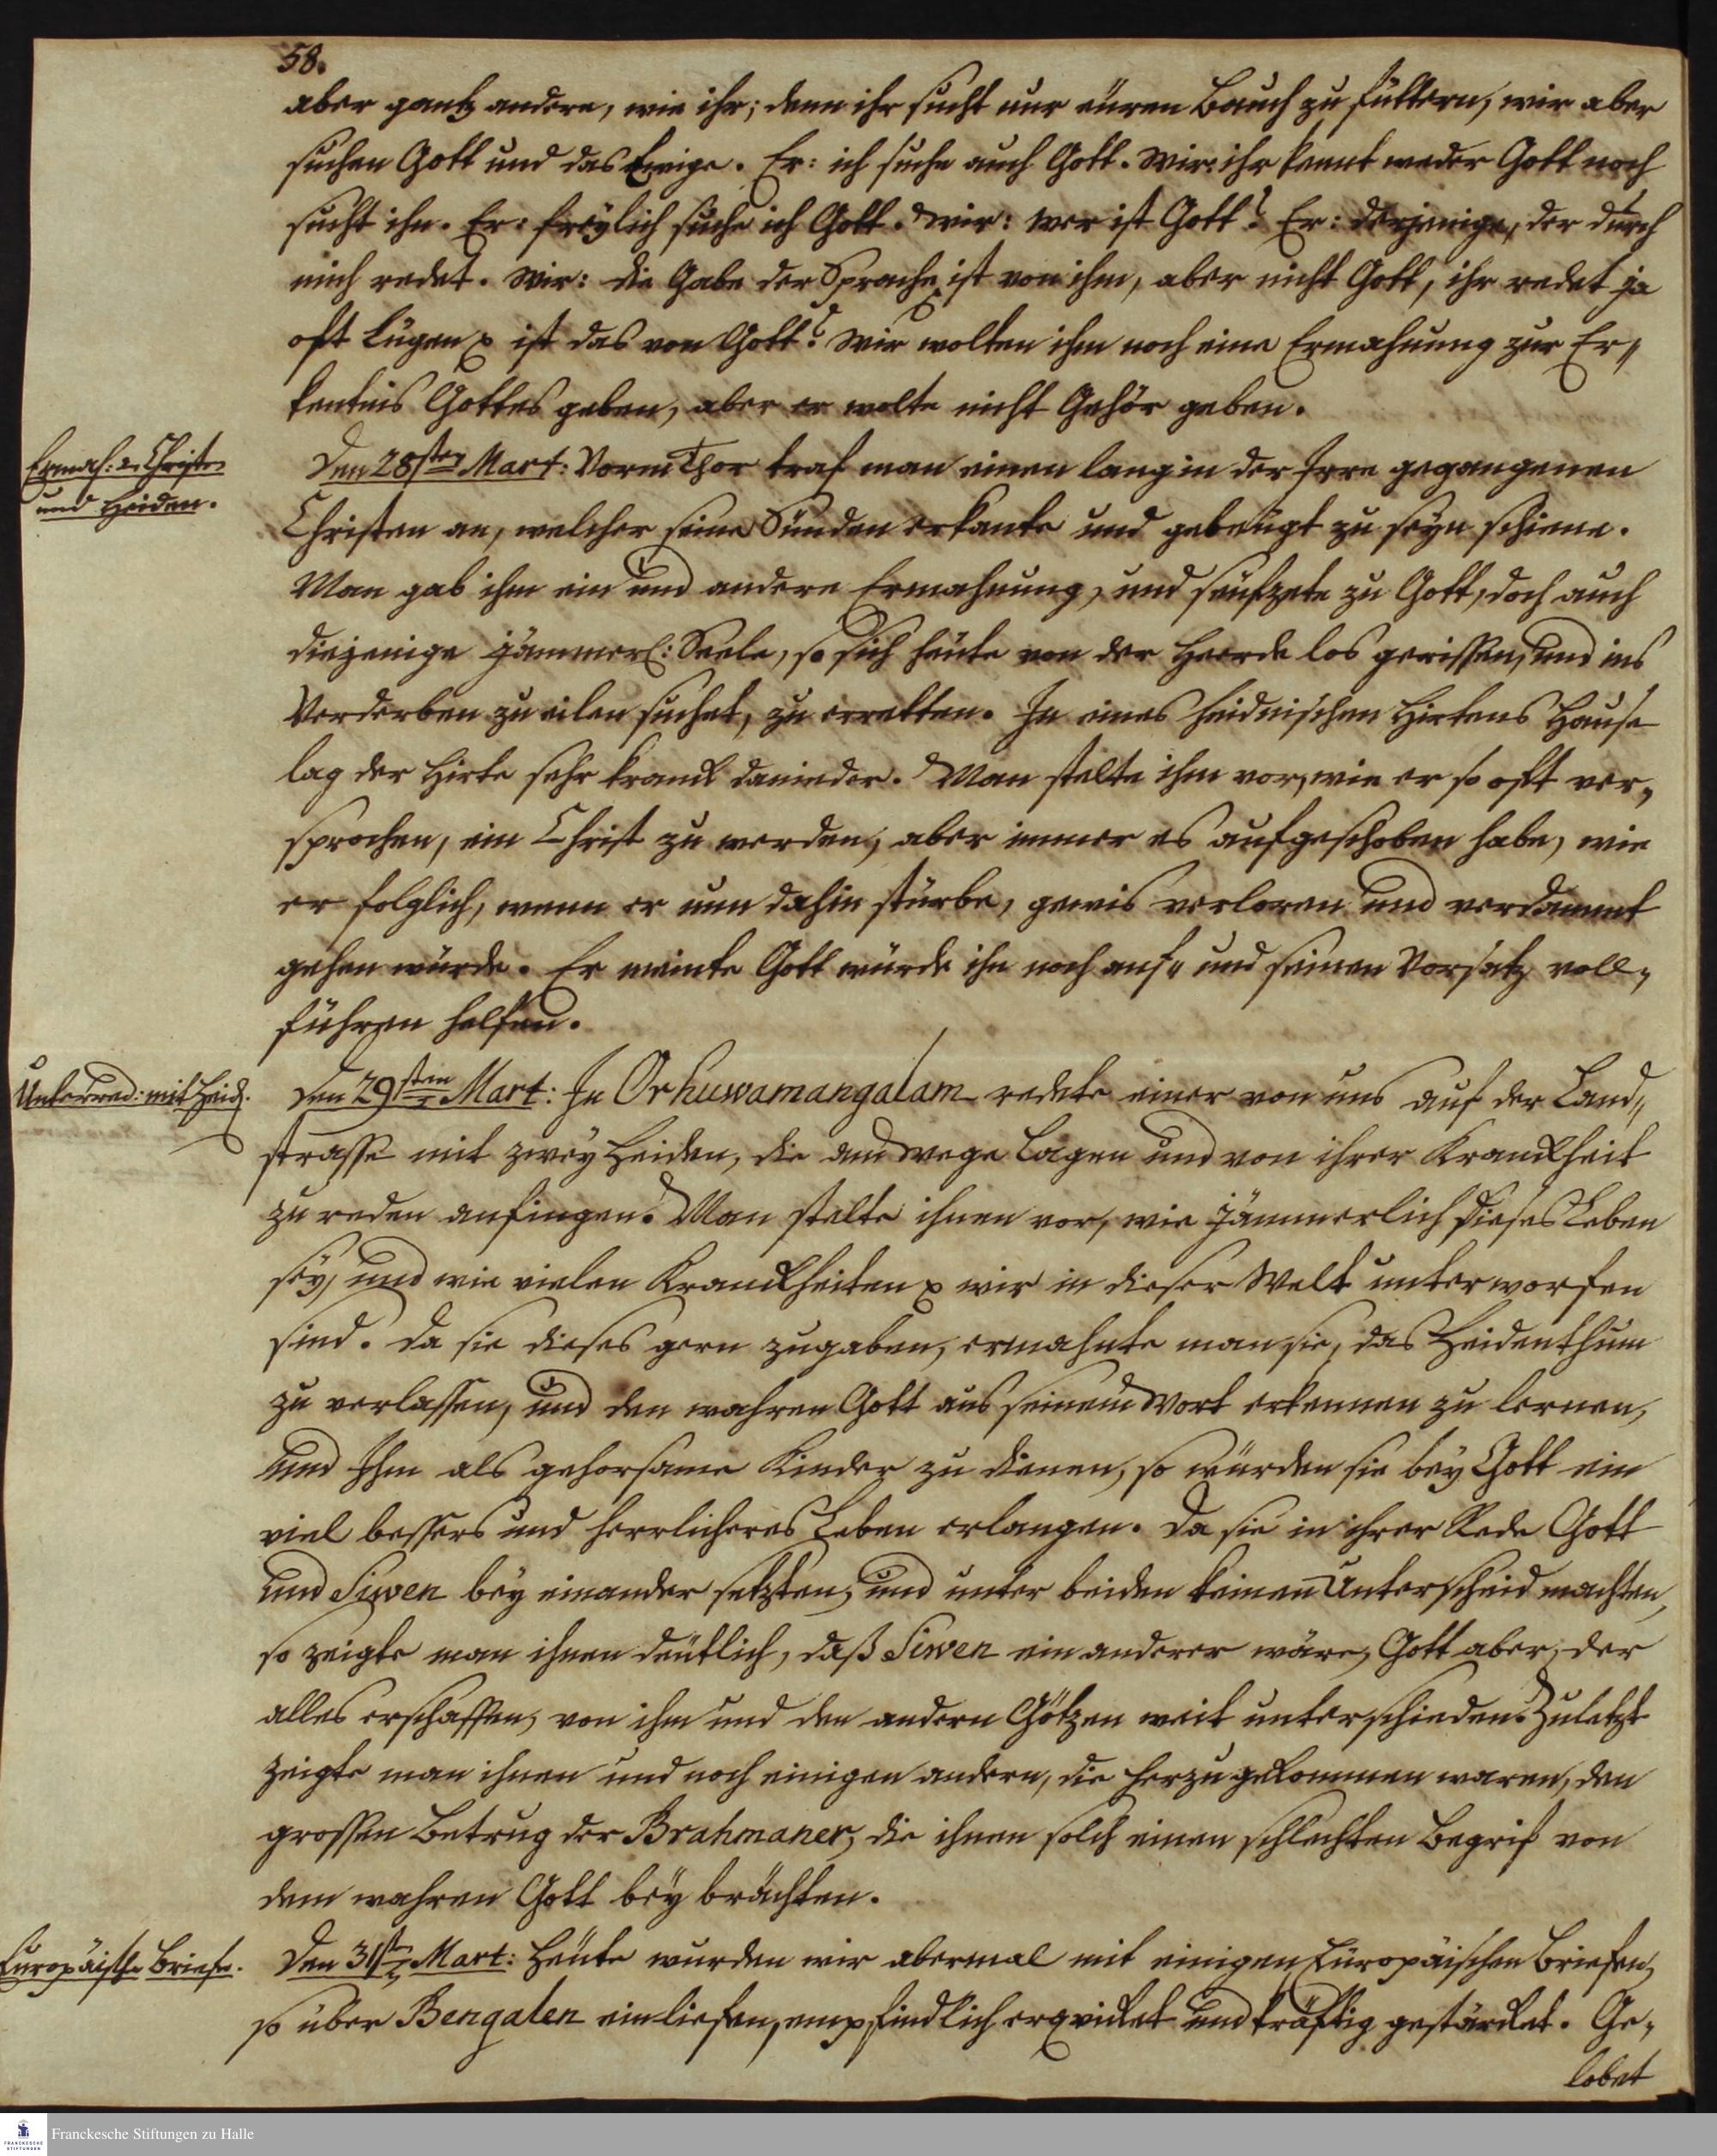 58.
aber gantz andere, wie ihr; denn ihr sucht nur euren Bauch zu füttern, wir aber
suchen Gott und das Ewige. Er: ich suche auch Gott. Wir: ihr kennt weder Gott noch
sucht ihn. Er: freylich suche ich Gott. Wir: wer ist Gott? Er: derjenige, der durch
mich redet. Wir: die Gabe der Sprache ist von ihm, aber nicht Gott, ihr redet ja
oft Lügen ist das von Gott? Wir wolten ihm noch eine Ermahnung zur Er„
kentnis Gottes geben, aber er wolte nicht Gehör geben.
Ermah: e. Christen
und Heiden.
Den 28sten Mart: Vorm Thor traf man einen lang in der Irre gegangenen
Christen an, welcher seine Sünden erkante und gebeugt zu seyn schiene.
Man gab ihm ein und andere Ermahnung, und seufzete zu Gott, doch auch
diejenige jämmerl: Seele, so sich heute von der Heerde los gerissen, und ins
Verderben zu eilen suchet, zu erretten. In eines heidnischen Hirtens Hause
lag der Hirte sehr kranck danieder. Man stelte ihm vor, wie er so oft ver„
sprochen, ein Christ zu werden, aber immer es aufgeschoben habe, wie
er folglich, wenn er nun dahin stürbe, gewis verloren und verdammt
gehen würde. Er meinte Gott würde ihn noch auf„ und seinen Vorsatz voll„
führen helfen.
Unterred: mit Heid.
Den 29sten Mart: In Orhuwamangalam redete einer von uns auf der Land„
strasse mit zwey Heiden, die am Wege lagen und von ihrer Kranckheit
zu reden anfingen. Man stelte ihnen vor, wie jämmerlich dieses Leben
sey, und wie vielen Kranckheiten wir in dieser Welt unterworfen
sind. Da sie dieses gern zugaben, ermahnte man sie, das Heidenthum
zu verlassen, und den wahren Gott aus seinem Wort erkennen zu lernen,
und Ihm als gehorsame Kinder zu dienen, so würden sie bey Gott ein
viel bessers und herrlicheres Leben erlangen. Da sie in ihrer Rede Gott
und Siwen bey einander setzten, und unter beiden keinen Unterscheid machten,
so zeigte man ihnen deutlich, daß Siwen ein anderer wäre, Gott aber, der
alles erschaffen, von ihm und den andern Götzen weit unterschieden. Zuletzt
zeigte man ihnen und noch einigen andern, die herzu gekommen waren, den
grossen Betrug der Brahmaner, die ihnen solch einen schlechten Begrif von
dem wahren Gott bey brächten.
Europäische Briefe.
Den 31sten Mart: Heute wurden wir abermal mit einigen Europäischen Briefen,
so über Bengalen einliefen, empfindlich erqvicket und kräftig gestärcket. Ge„
lobet
Franckesche Stiftungen zu Halle
FRANCKESCHE
STIFTUNGEN